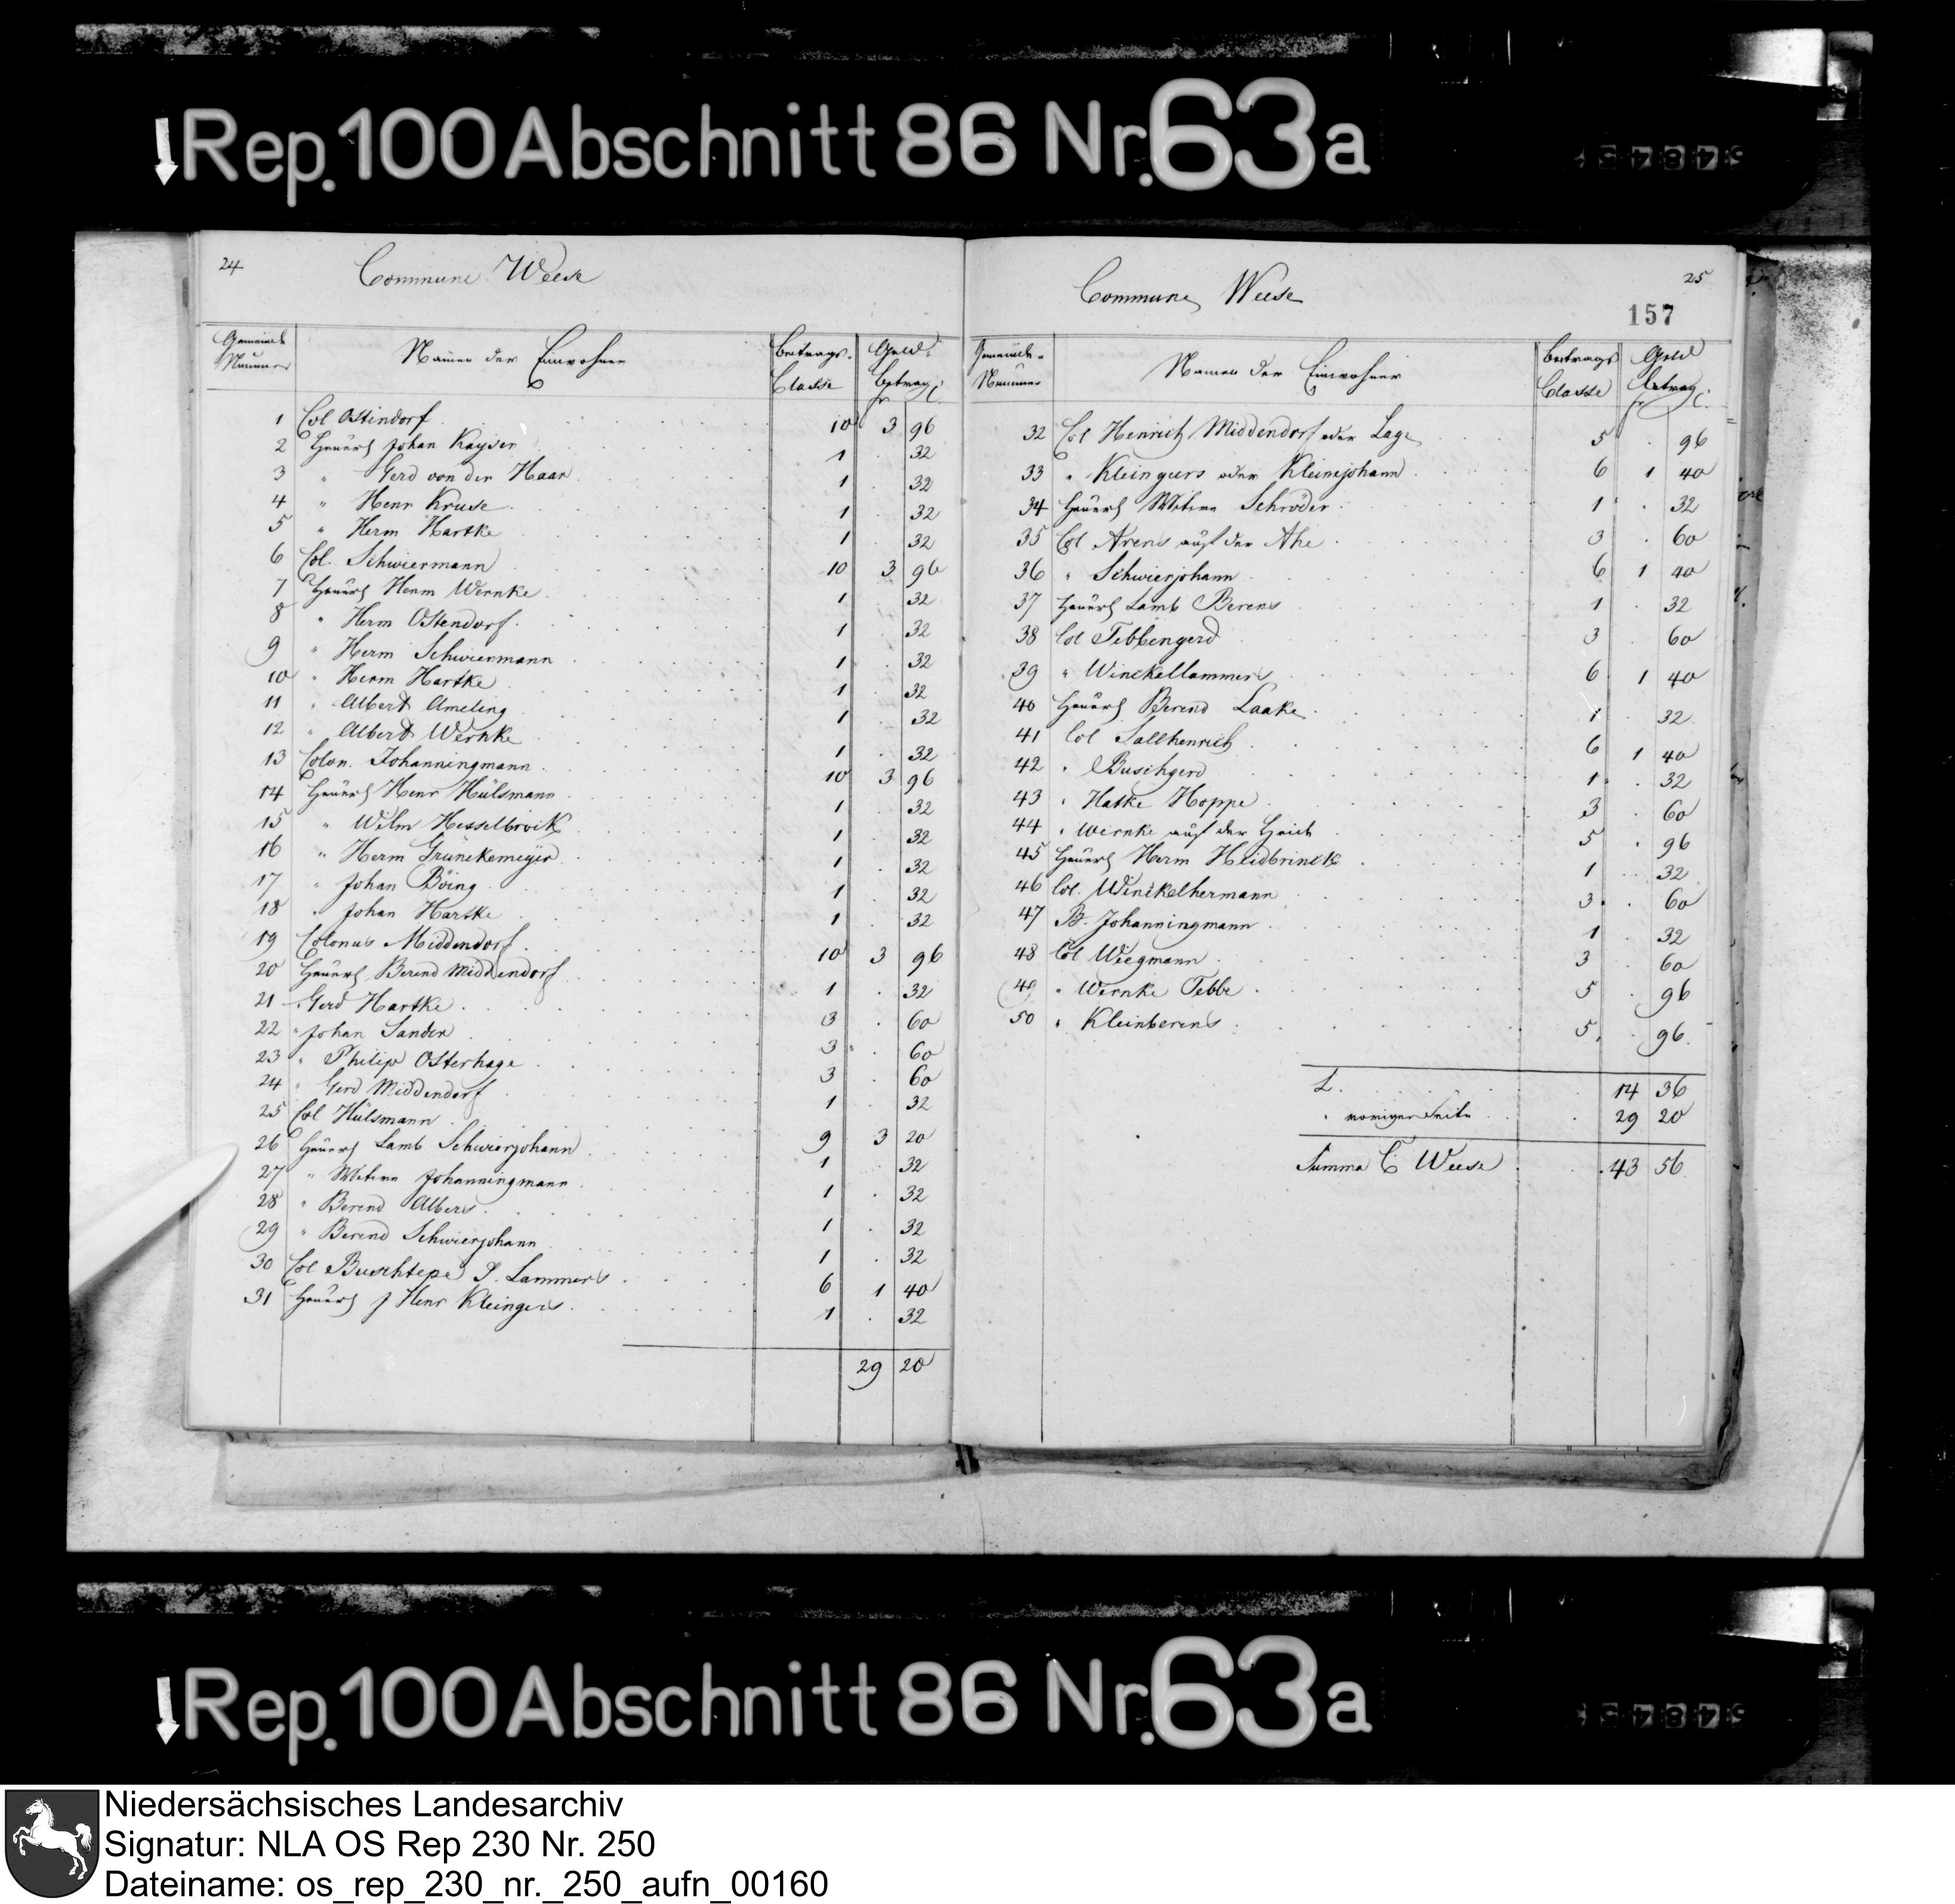 Rep. 100 Abschnitt 86 Nr. 63a
24
Commune Weese
Gemeinde Nummer | Namen der Einwohner | Beitrags-Classe | Geld-Betrag fr c.
1 Col Ostendorf 10 3 96
2 Heuerl Johan Kayser 1 . 32
3 " Gerd von der Haar 1 . 32
4 " Henr Kruse 1 . 32
5 " Herm Hartke 1 . 32
6 Col. Schwiermann 10 3 96
7 Heuerl Herm Wernke 1 . 32
8 " Herm Ostendorf 1 . 32
9 " Herm Schwiermann 1 . 32
10 " Herm Hartke 1 . 32
11 " Albert Ameling 1 . 32
12 " Albert Wernke 1 . 32
13 Colon. Johanningmann 10 3 96
14 Heuerl Henr Hülsmann 1 . 32
15 " Wilm Hesselbrock 1 . 32
16 " Herm Grünekemeyer 1 . 32
17 " Johan Böing 1 . 32
18 " Johan Hartke 1 . 32
19 Colonus Middendorf 10 3 96
20 Heuerl Berend Middendorf 1 . 32
21 " Gerd Hartke 3 . 60
22 " Johan Sander 3 . 60
23 " Philip Osterhage 3 . 60
24 " Gerd Middendorf 1 . 32
25 Col Hülsmann 9 3 20
26 Heuerl Lamb Schwierjohann 1 . 32
27 " Witwe Johanningmann 1 . 32
28 " Berend Albers 1 . 32
29 " Berend Schwierjohann 1 . 32
30 Col Buschtepe J. Lammers 6 1 40
31 Heuerl J Henr Kleingers 1 . 32
29 20
25
157
Commune Weese
Gemeinde-Nummer | Namen der Einwohner | Beitrags Classe | Geld Betrag fr c.
32 Col Henrich Middendorf oder Lage 5 . 96
33 " Kleingers oder Kleinejohann 6 1 40
34 Heuerl Witwe Schröder 1 . 32
35 Col Arens auf der Ahe 3 . 60
36 " Schwierjohann 6 1 40
37 Heuerl Lamb Berens 1 . 32
38 Col Tebbengerd 3 . 60
39 " Winckellammers 6 1 40
40 Heuerl Berend Laake 1 . 32
41 Col Sallhenrich 6 1 40
42 " Buschgerd 1 . 32
43 " Hatke Hoppe 3 . 60
44 " Wernke auf der Heide 5 . 96
45 Heuerl Herm Heidbrinck 1 . 32
46 Col. Winckelhermann 3 . 60
47 B. Johanningmann 1 . 32
48 Col Wiegmann 3 . 60
49 " Wernke Tebbe 5 . 96
50 " Kleinberens 5 . 96
L. 14 36
" voriger Seite 29 20
Summa C Weese 43 56
Rep. 100 Abschnitt 86 Nr. 63a
Niedersächsisches Landesarchiv
Signatur: NLA OS Rep 230 Nr. 250
Dateiname: os_rep_230_nr._250_aufn_00160